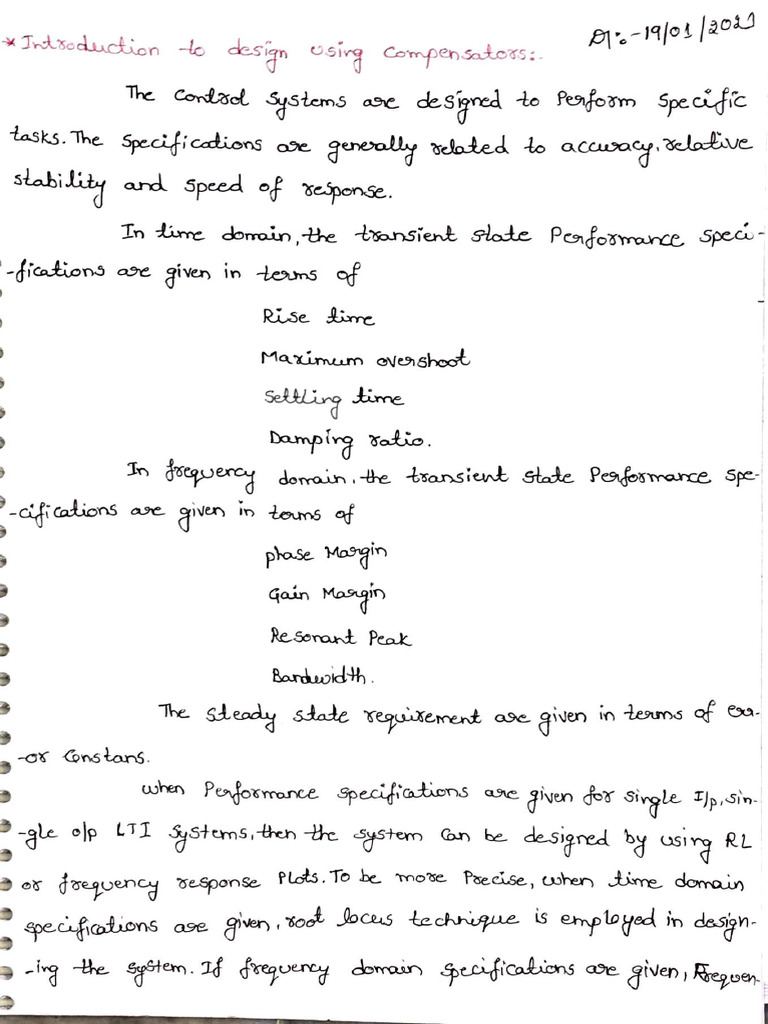 Dt:-19/01/2021
* Introduction to design using compensators:-
The control systems are designed to perform specific
tasks. The specifications are generally related to accuracy, relative
stability and speed of response.
In time domain, the transient state performance speci-
-fications are given in terms of
Rise time
Maximum overshoot
Settling time
Damping ratio.
In frequency domain, the transient state performance spe-
-cifications are given in terms of
phase Margin
Gain Margin
Resonant Peak
Bandwidth.
The steady state requirement are given in terms of err-
-or constans.
when Performance specifications are given for single I/p, sin-
-gle o/p LTI systems, then the system can be designed by using RL
or frequency response plots. To be more precise, when time domain
specifications are given, root locus technique is employed in design-
-ing the system. If frequency domain specifications are given, Frequen-